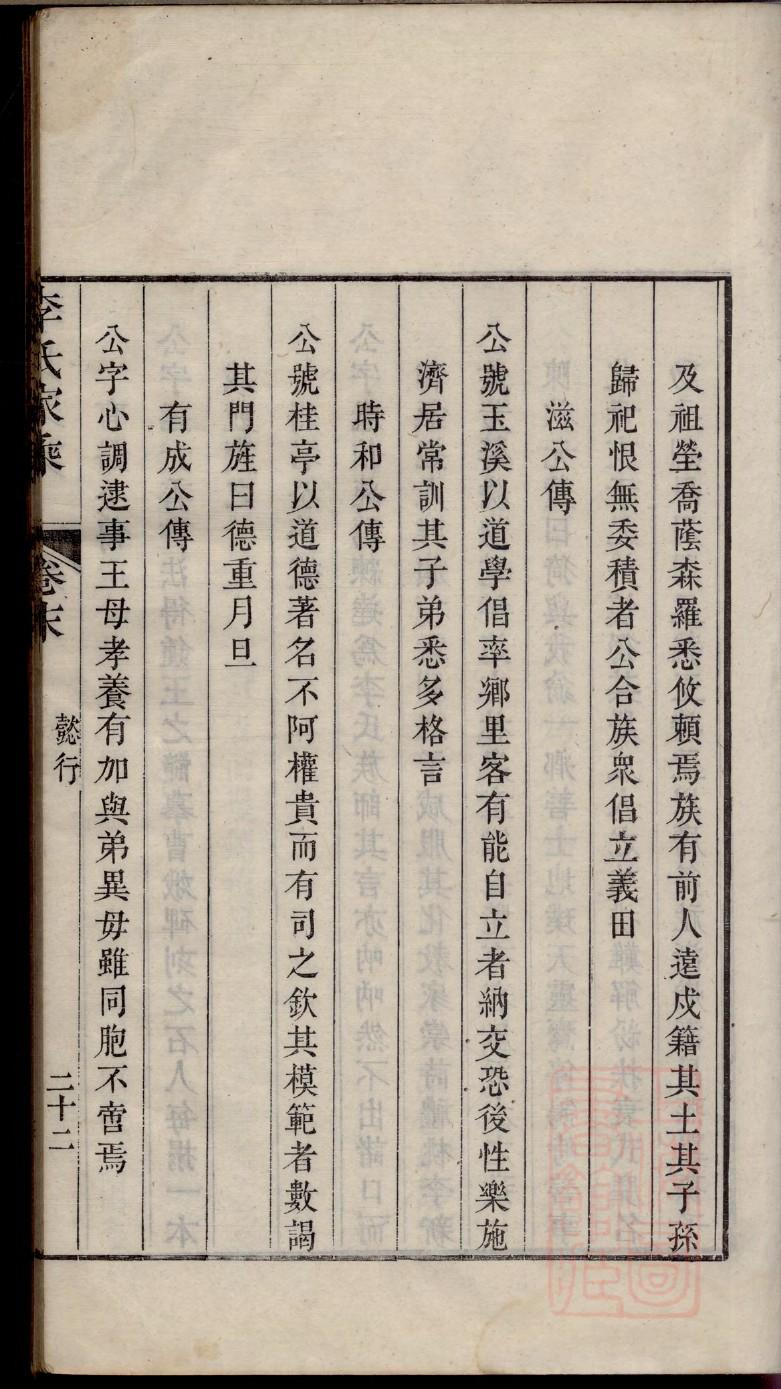 及祖塋喬蔭森羅悉攸頼焉族有前人遠戍籍其土其子孫
歸祀恨無委積者公合族衆倡立義田
滋公傳
公號玉溪以道學倡率鄉里客有能自立者納交恐後性樂施
濟居常訓其子弟悉多格言
時和公傳
公號桂亭以道德著名不阿權貴而有司之欽其模範者數謁
其門旌曰德重月旦
有成公傳
公字心調逮事王母孝養有加與弟異毋雖同胞不啻焉
李氏家乘 卷末 懿行 二十二